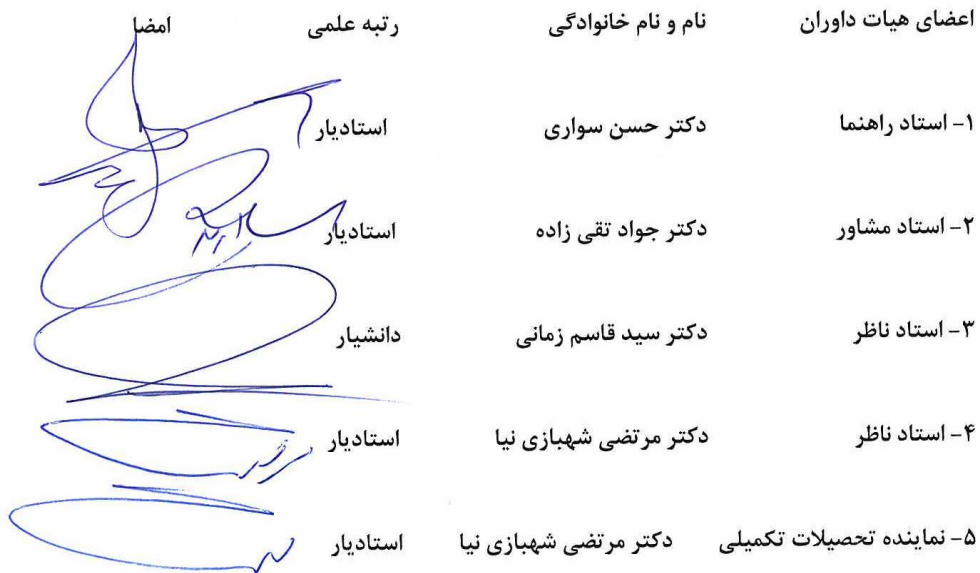 اعضای هیات داوران نام و نام خانوادگی رتبه علمی امضا
۱- استاد راهنما دکتر حسن سواری استادیار
۲- استاد مشاور دکتر جواد تقی زاده استادیار
۳- استاد ناظر دکتر سید قاسم زمانی دانشیار
۴- استاد ناظر دکتر مرتضی شهبازی نیا استادیار
۵- نماینده تحصیلات تکمیلی دکتر مرتضی شهبازی نیا استادیار